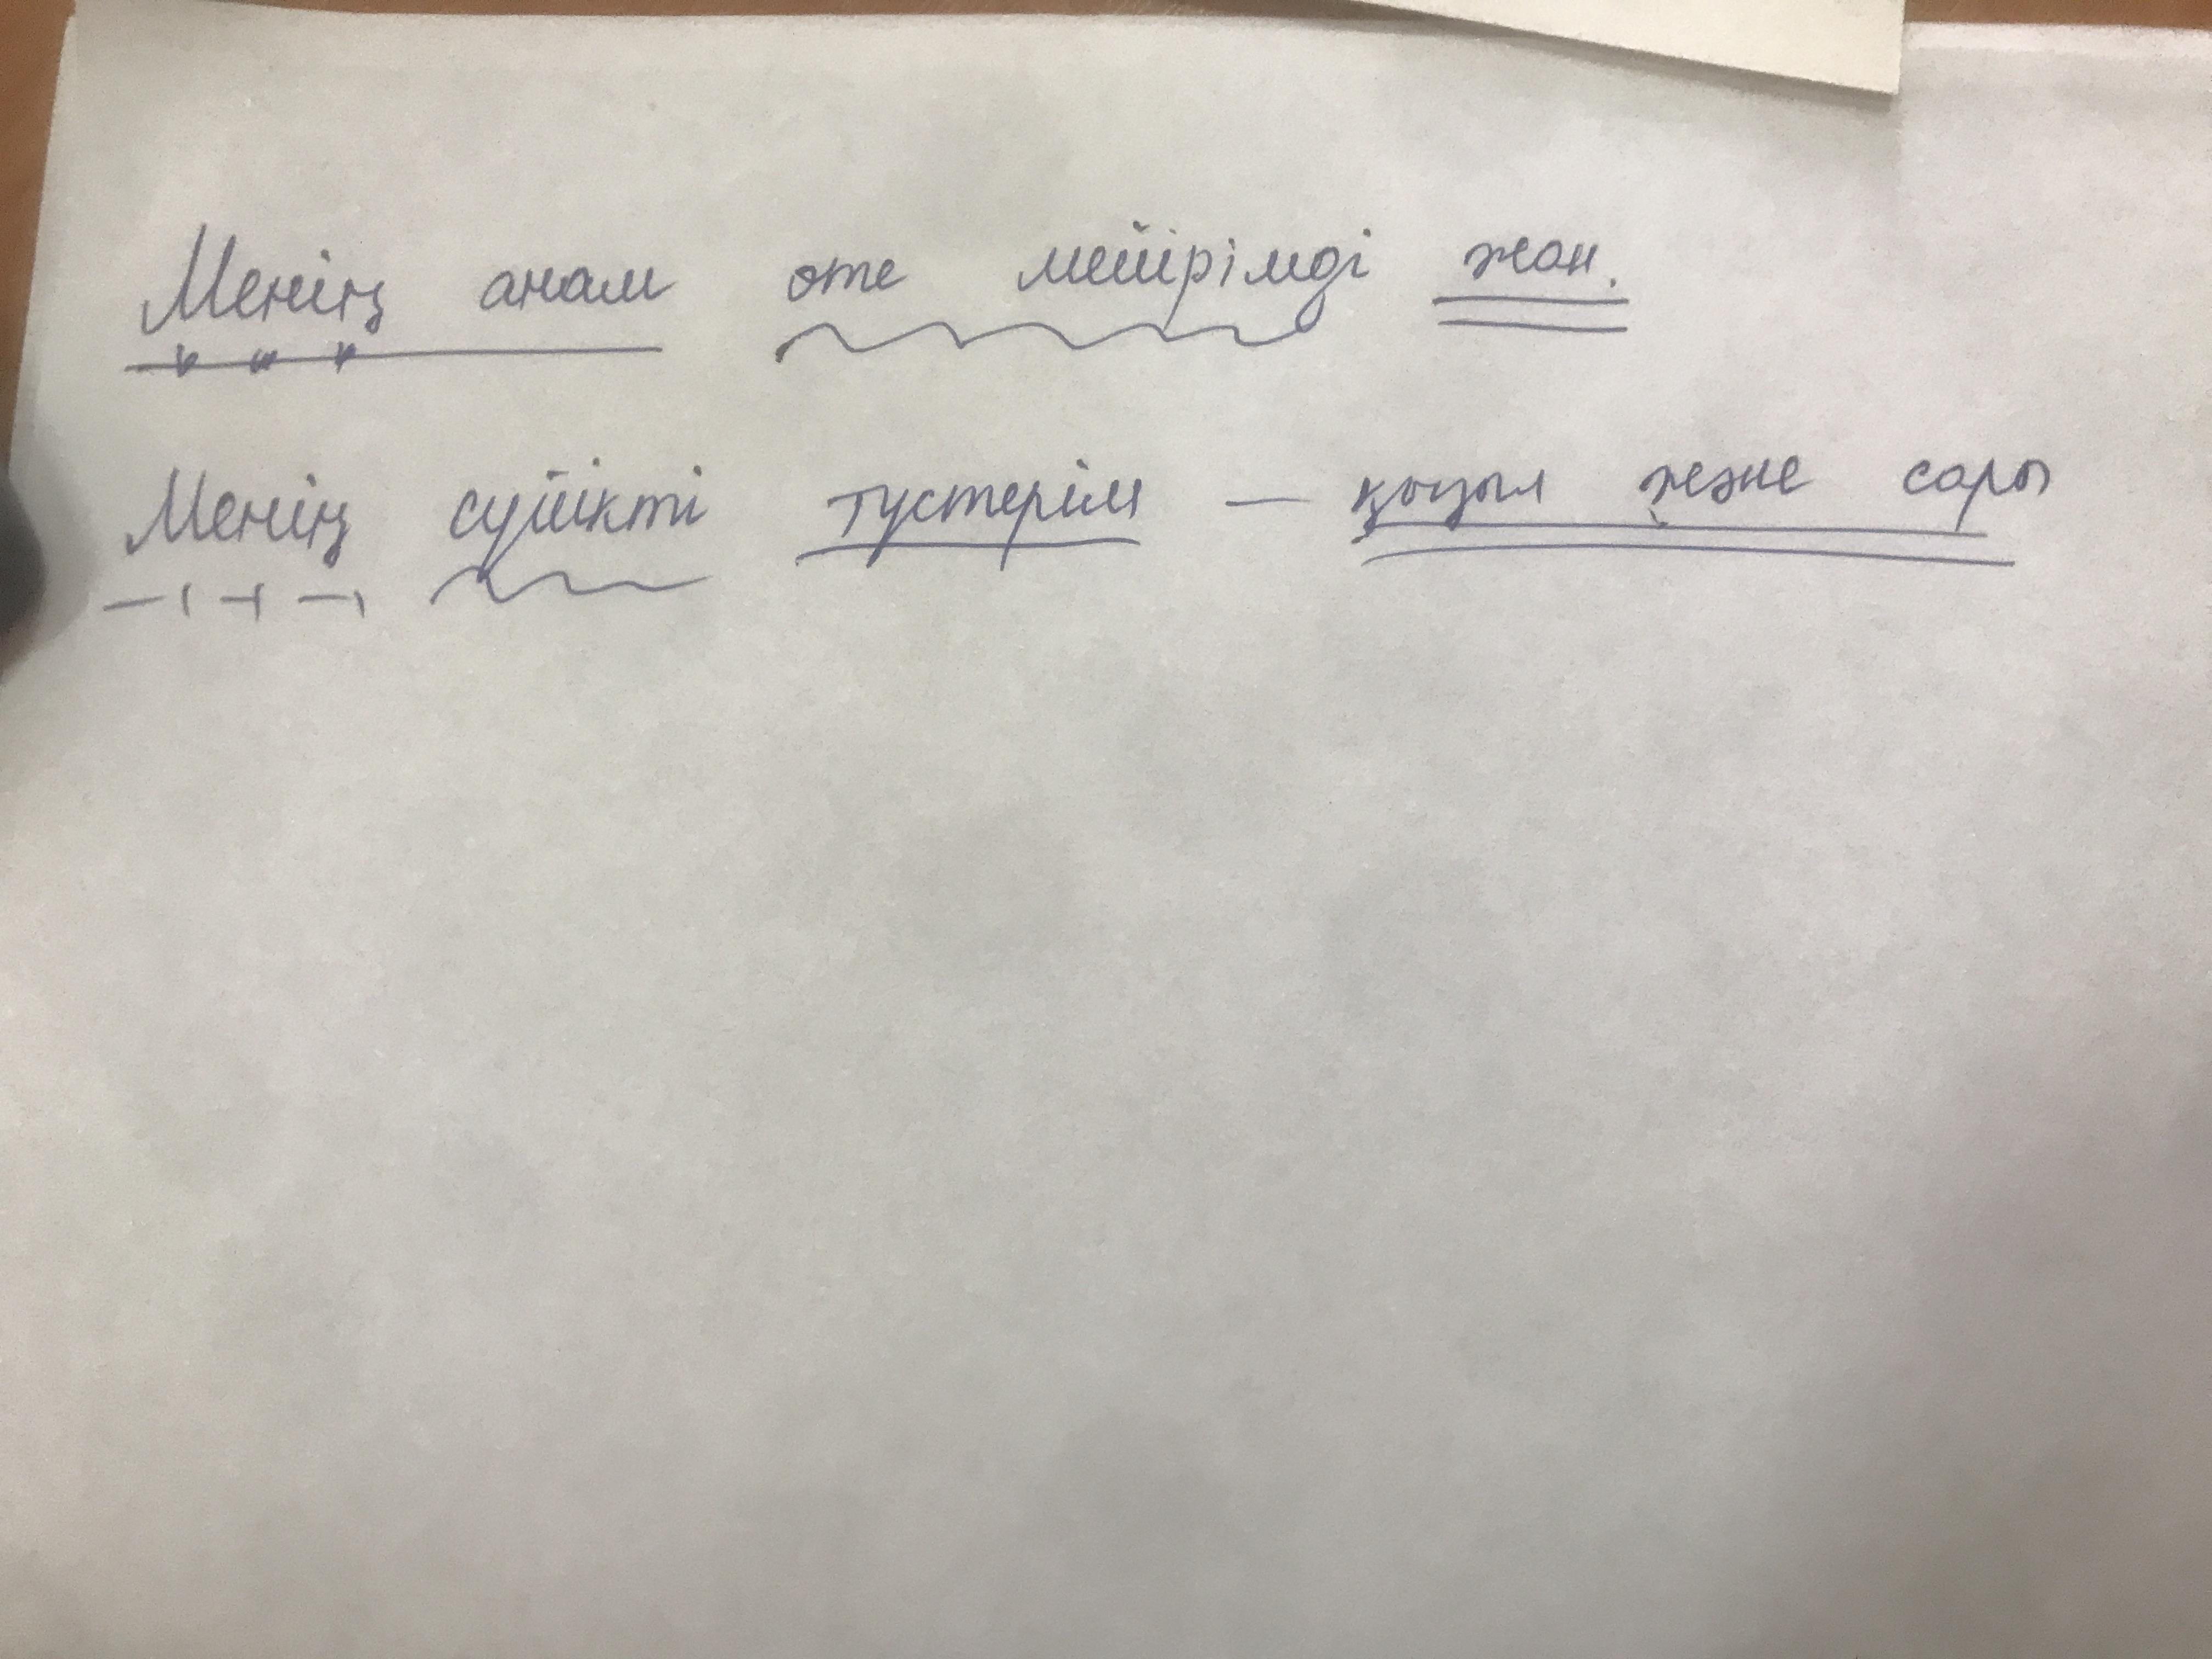 Менің анам өте мейірімді жан.
Менің сүйікті түстерім — қызыл және сары